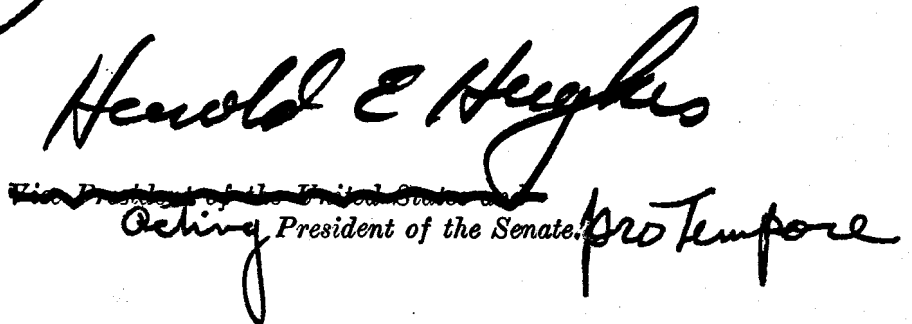 Harold E Hughes
Vice President of the United States and
Acting President of the Senate. pro Tempore